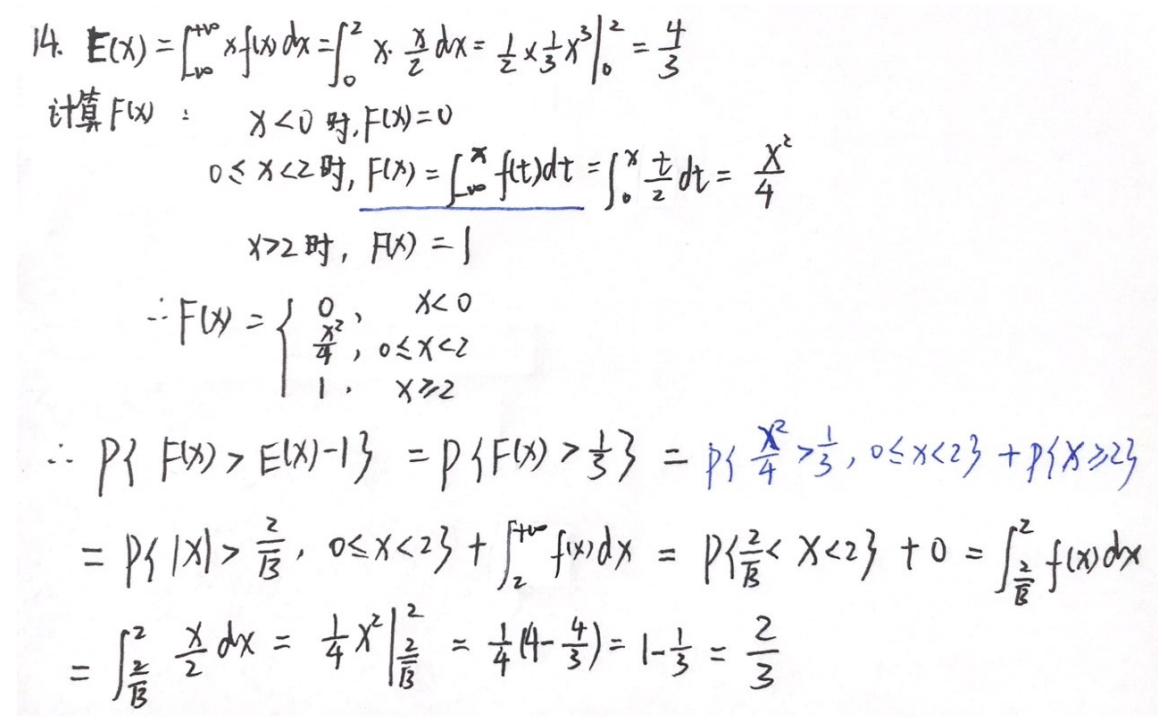 14. E(X) = ∫_{-∞}^{+∞} x f(x) dx = ∫_0^2 x · x/2 dx = 1/2 × 1/3 x^3 |_0^2 = 4/3
计算 F(x) : x<0 时, F(x)=0
0 ≤ x<2 时, F(x) = ∫_{-∞}^x f(t)dt = ∫_0^x t/2 dt = x^2/4
x>2 时, F(x) = 1
∴ F(x) = { 0, x<0
x^2/4, 0≤x<2
1, x≥2
∴ P{ F(X) > E(X)-1} = P{F(X) > 1/3} = P{ X^2/4 > 1/3, 0≤X<2} + P{X≥2}
= P{ |X| > 2/√3, 0≤X<2} + ∫_2^{+∞} f(x) dx = P{2/√3 < X<2} + 0 = ∫_{2/√3}^2 f(x) dx
= ∫_{2/√3}^2 x/2 dx = 1/4 x^2 |_{2/√3}^2 = 1/4 (4 - 4/3) = 1 - 1/3 = 2/3